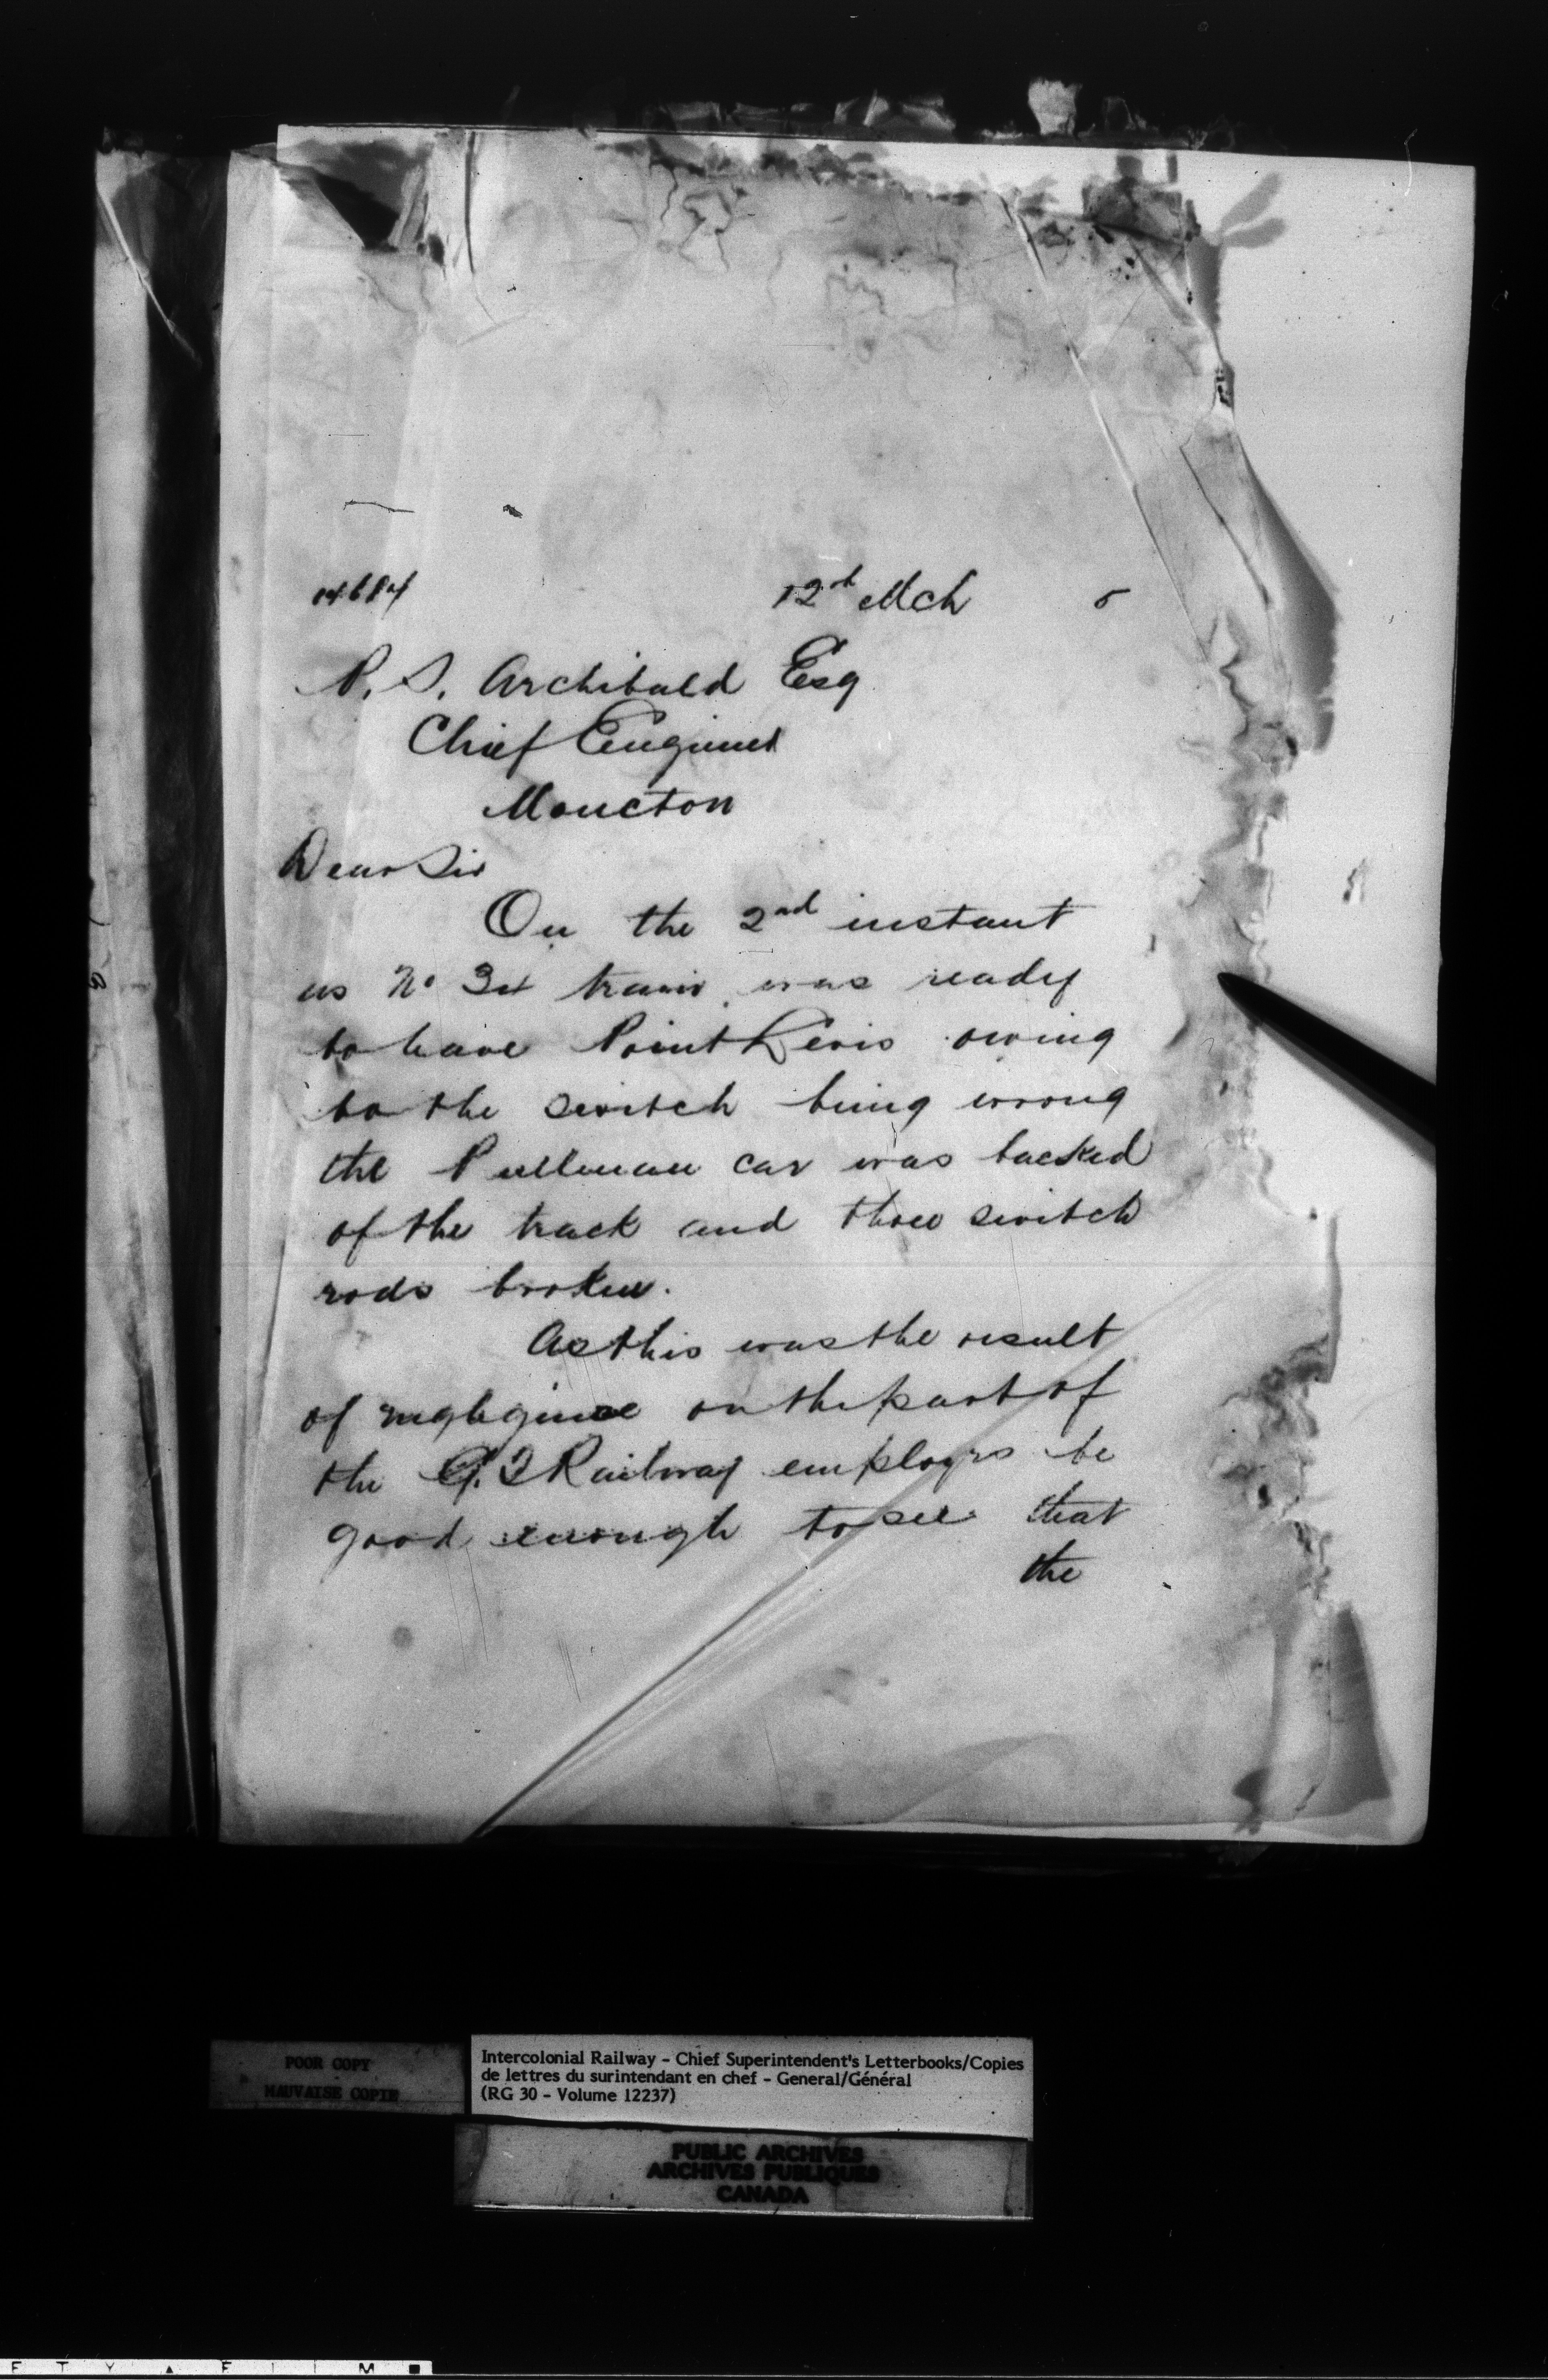 14684 12th Mch 5
P. S. Archibald Esq
Chief Engineer
Moncton
Dear Sir
On the 2nd instant
as No 34 train was ready
to leave Point Levis owing
to the switch being wrong
the Pullman car was backed
of the track and three switch
rods broken.
As this was the result
of negligence on the part of
the G. T Railway employes be
good enough to see that
the
POOR COPY
MAUVAISE COPIE
Intercolonial Railway - Chief Superintendent's Letterbooks/Copies
de lettres du surintendant en chef - General/Général
(RG 30 - Volume 12237)
PUBLIC ARCHIVES
ARCHIVES PUBLIQUES
CANADA